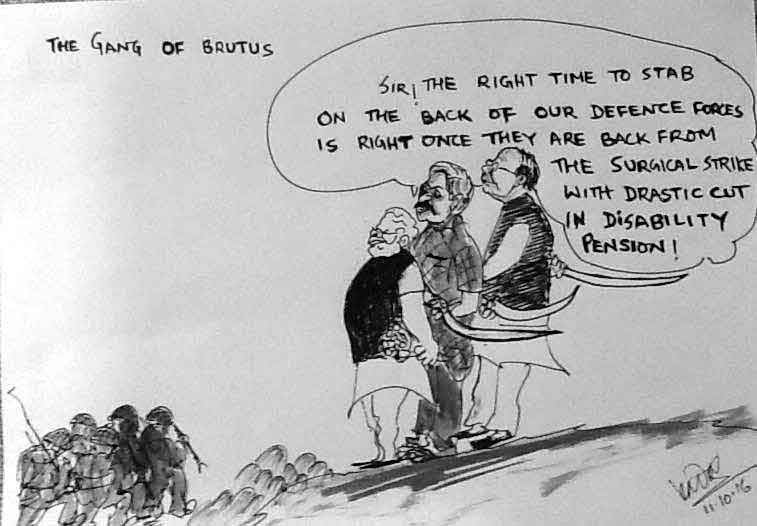 THE GANG OF BRUTUS
SIR! THE RIGHT TIME TO STAB
ON THE BACK OF OUR DEFENCE FORCES
IS RIGHT ONCE THEY ARE BACK FROM
THE SURGICAL STRIKE
WITH DRASTIC CUT
IN DISABILITY
PENSION!
11·10·16